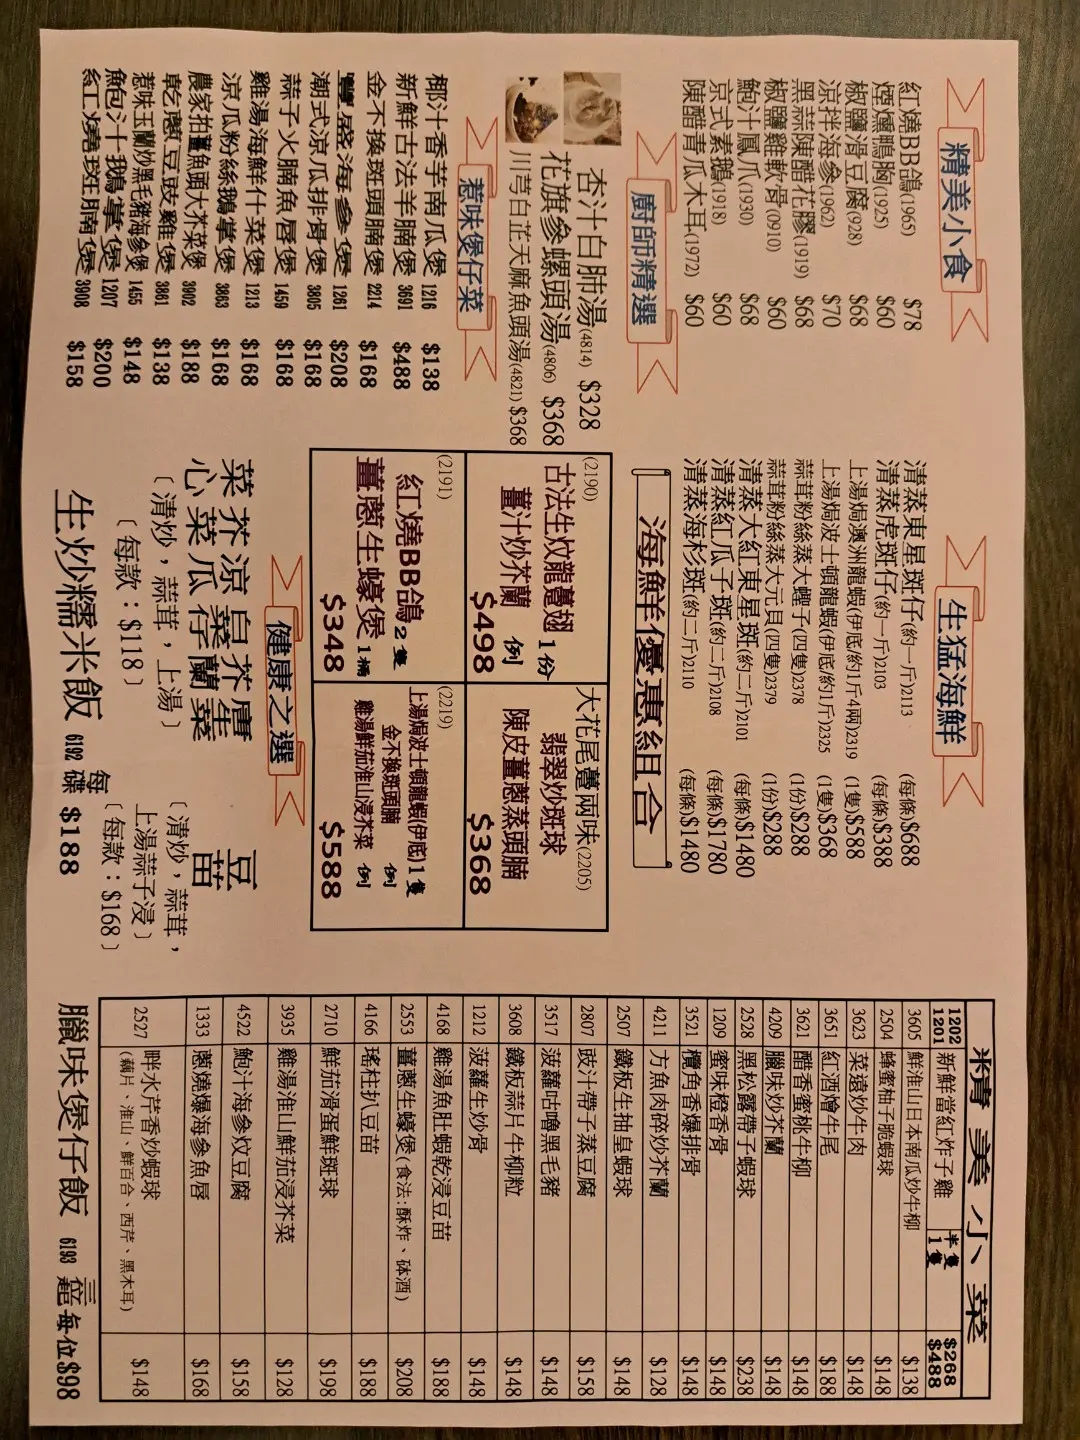 精美小食
紅燒BB鴿(1965) $78
煙燻鴨胸(1925) $60
椒鹽滑豆腐(928) $68
涼拌海參(1962) $70
黑蒜陳醋花膠(1919) $68
椒鹽雞軟骨(0910) $60
鮑汁鳳爪(1930) $68
京式素鵝(1918) $60
陳醋青瓜木耳(1972) $60
廚師精選
杏汁白肺湯(4814) $328
花旗參螺頭湯(4806) $368
川芎白芷天麻魚頭湯(4821) $368
惹味煲仔菜
椰汁香芋南瓜煲 1216 $138
新鮮古法羊腩煲 3691 $488
金不換斑頭腩煲 2214 $168
豐盛海參煲 1261 $208
潮式涼瓜排骨煲 3805 $168
蒜子火腩魚唇煲 1459 $168
雞湯海鮮什菜煲 1213 $168
涼瓜粉絲鵝掌煲 3863 $168
農家拍薑魚頭大芥菜煲 3902 $188
乾蔥豆豉雞煲 3861 $138
惹味玉蘭炒黑毛豬海參煲 1455 $148
鮑汁鵝掌煲 1207 $200
紅燒斑腩煲 3908 $158
生猛海鮮
清蒸東星斑仔(約一斤)2113 (每條)$688
清蒸虎斑仔(約一斤)2103 (每條)$388
上湯焗澳洲龍蝦(伊底/約1斤4兩)2319 (1隻)$588
上湯焗波士頓龍蝦(伊底約1斤)2325 (1隻)$368
蒜茸粉絲蒸大蟶子(四隻)2378 (1份)$288
蒜茸粉絲蒸大元貝(四隻)2379 (1份)$288
清蒸大紅東星斑(約二斤)2101 (每條)$1480
清蒸紅瓜子斑(約二斤)2108 (每條)$1780
清蒸海杉斑(約二斤)2110 (每條)$1480
海鮮優惠組合
(2190)
古法生炆龍躉翅 1份
薑汁炒芥蘭 例
$498
大花尾躉兩味(2205)
翡翠炒斑球
陳皮薑蔥蒸頭腩
$368
(2191)
紅燒BB鴿 2隻
薑蔥生蠔煲 1桶
$348
(2219)
上湯焗波士頓龍蝦(伊底)1隻
金不換斑頭腩 例
雞湯鮮茄淮山浸芥菜 例
$588
健康之選
菜芥涼白芥唐
心菜瓜菜蘭生
仔 菜
〔清炒,蒜茸,上湯〕
〔每款:$118〕
豆苗
〔清炒,蒜茸,
上湯蒜子浸〕
〔每款:$168〕
生炒糯米飯 6192 每碟 $188
精美小菜
1202 新鮮當紅炸子雞 半隻 $268
1201 1隻 $488
3605 鮮淮山日本南瓜炒牛柳 $138
2504 蜂蜜柚子脆蝦球 $148
3623 菜遠炒牛肉 $148
3651 紅酒燴牛尾 $188
3621 醋香蜜桃牛柳 $148
4209 臘味炒芥蘭 $148
2528 黑松露帶子蝦球 $238
1209 蜜味橙香骨 $148
3521 欖角香爆排骨 $148
4211 方魚肉碎炒芥蘭 $128
2507 鐵板生抽皇蝦球 $148
2807 豉汁帶子蒸豆腐 $158
3517 菠蘿咕嚕黑毛豬 $148
3608 鐵板蒜片牛柳粒 $148
1212 菠蘿生炒骨 $148
4168 雞湯魚肚蝦乾浸豆苗 $188
2553 薑蔥生蠔煲(食法:酥炸、砵酒) $208
4166 瑤柱扒豆苗 $188
2710 鮮茄滑蛋鮮斑球 $198
3935 雞湯淮山鮮茄浸芥菜 $128
4522 鮑汁海參炆豆腐 $158
1333 蔥燒爆海參魚唇 $168
2527 畔水芹香炒蝦球 $148
(藕片、淮山、鮮百合、西芹、黑木耳)
臘味煲仔飯 6193 每位$98